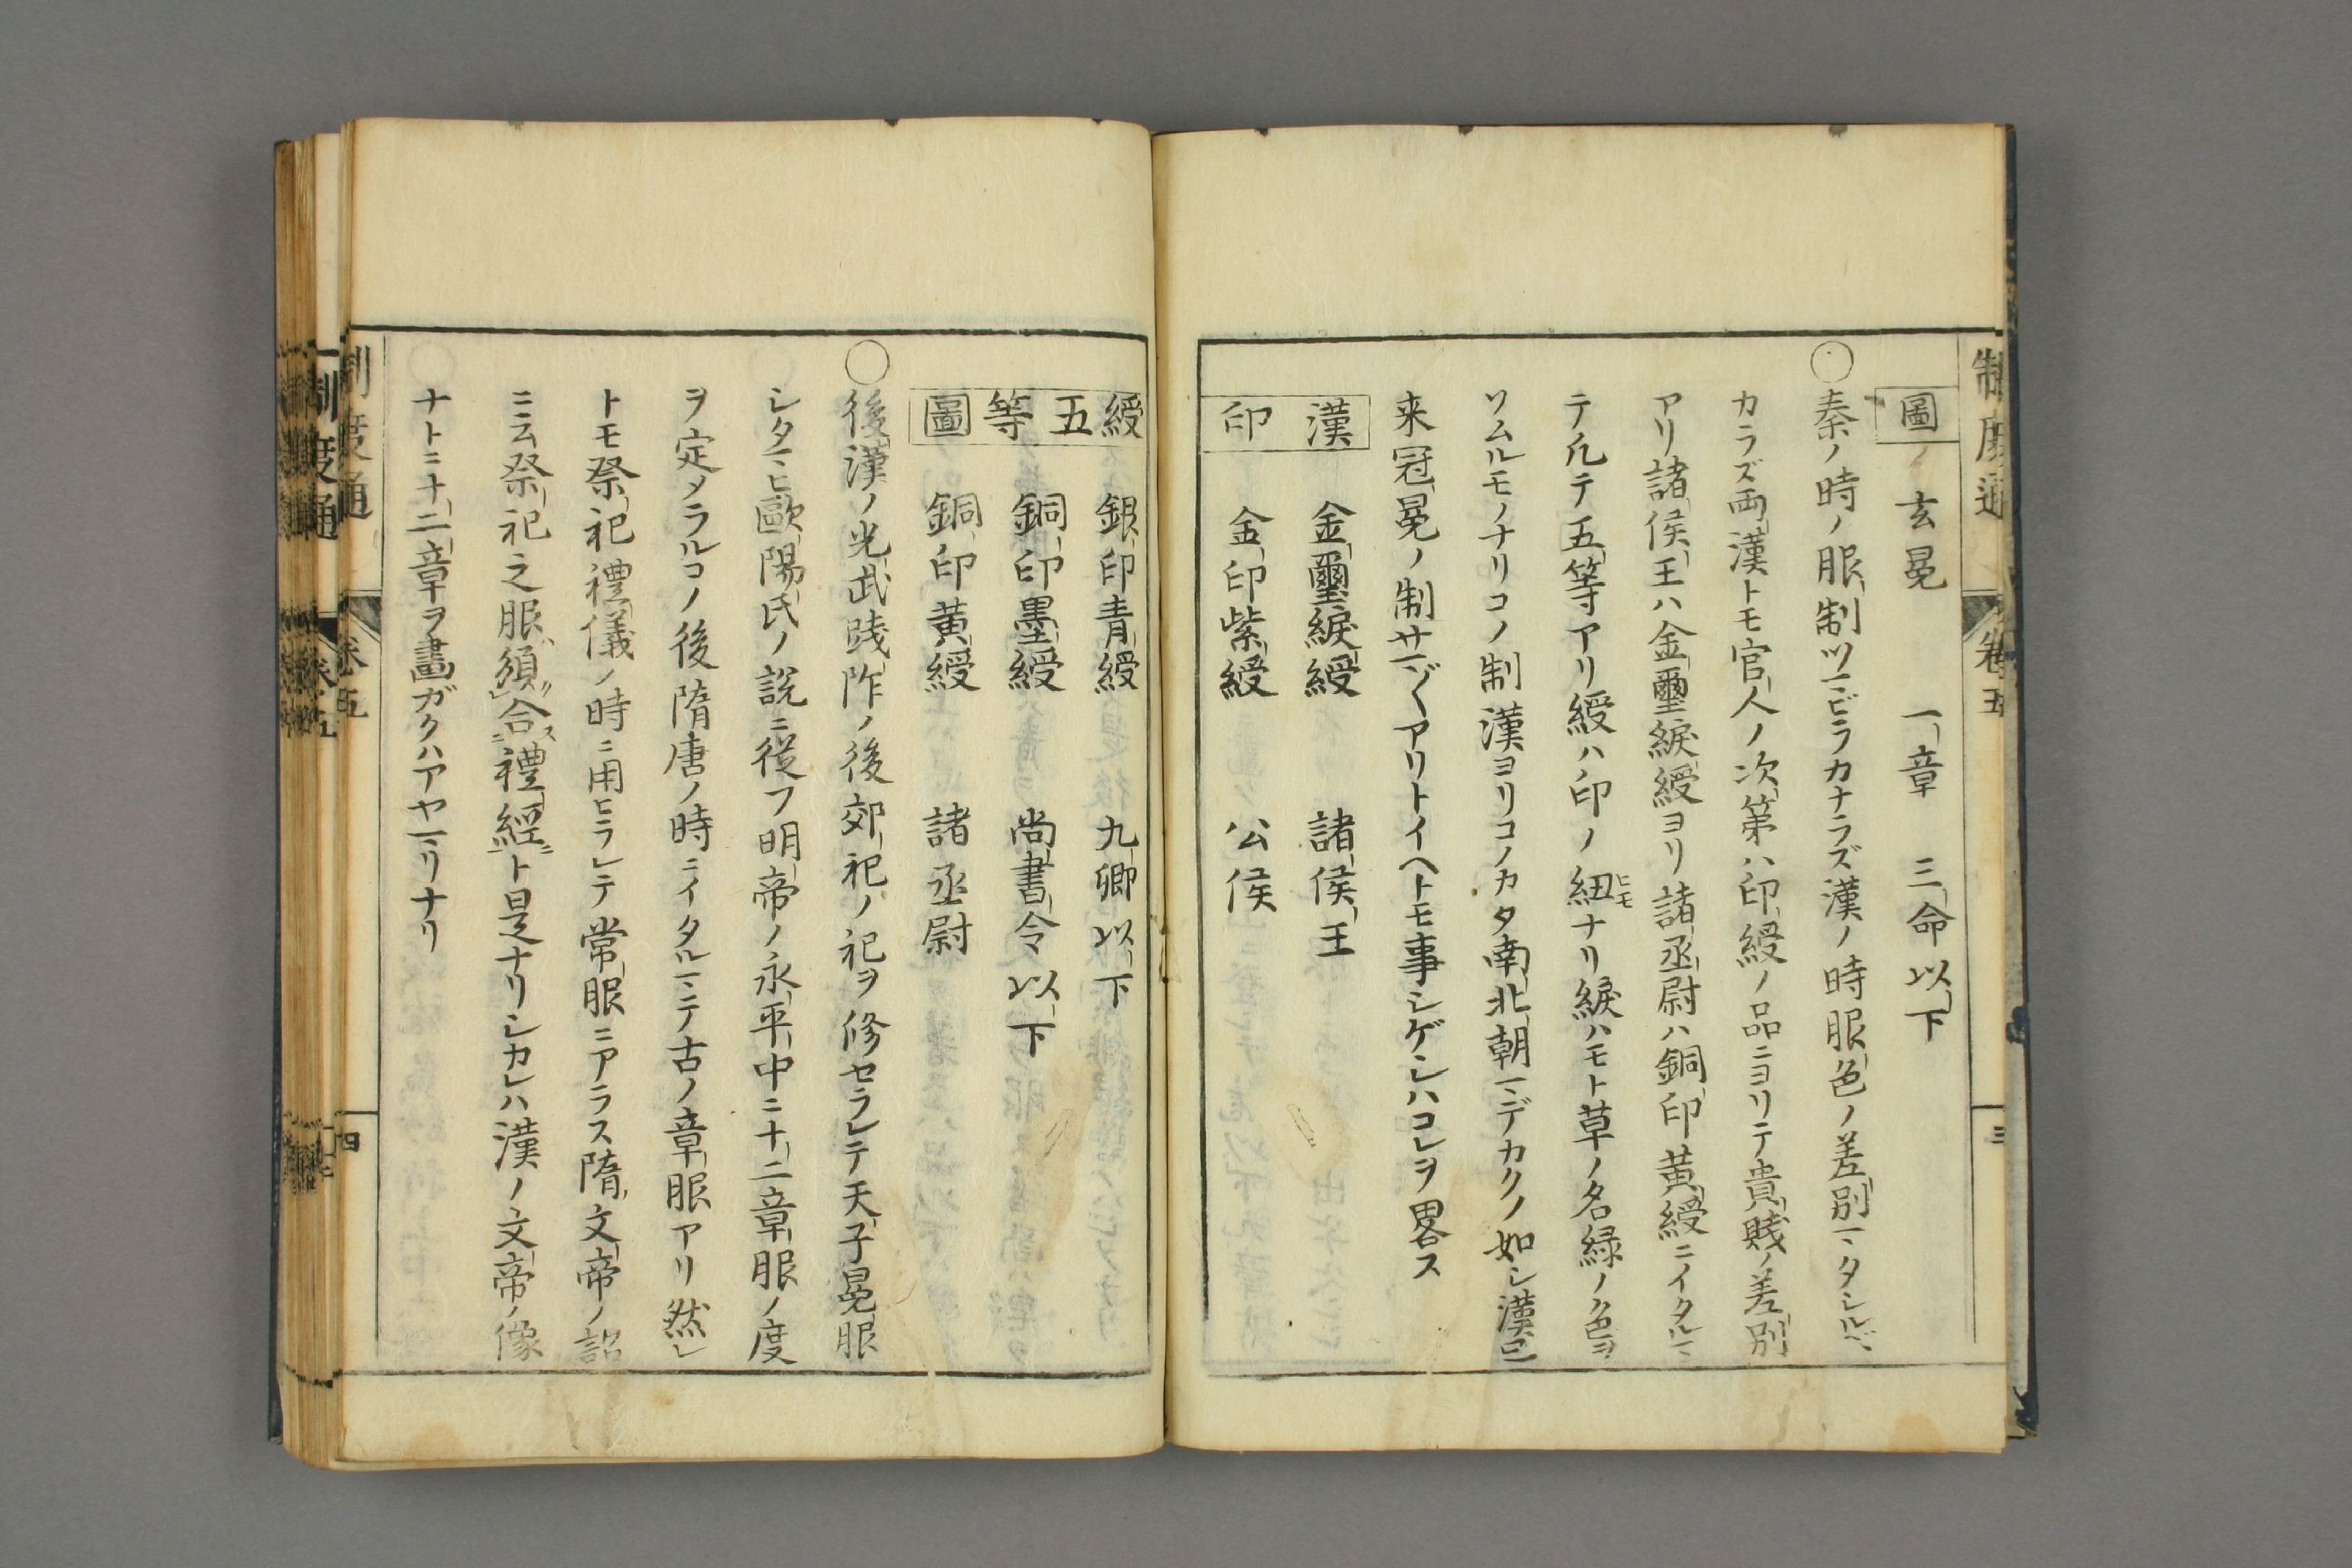 制度通 卷五 三
圖 玄冕 一章 三命以下
○秦ノ時ノ服制ツマビラカナラズ漢ノ時服色ノ差別マタシルベ
カラズ両漢トモ官人ノ次第ハ印綬ノ品ニヨリテ貴賤ノ差別
アリ諸侯王ハ金璽綟綬ヨリ諸丞尉ハ銅印黄綬ニイタルマ
テ凡テ五等アリ綬ハ印ノ紐ヒモナリ綟ハモト草ノ名緑ノ色ヲ
ソムルモノナリコノ制漢ヨリコノカタ南北朝マデカクノ如シ漢已
来冠冕ノ制サマ〴〵アリトイヘトモ事シゲシハコレヲ畧ス
漢 金璽綟綬 諸侯王
印 金印紫綬 公侯
綬 銀印青綬 九卿以下
五等 銅印墨綬 尚書令以下
圖 銅印黄綬 諸丞尉
○後漢ノ光武践阼ノ後郊祀ノ祀ヲ修セラレテ天子冕服
シタマヒ歐陽氏ノ説ニ従フ明帝ノ永平中ニ十二章服ノ度
ヲ定メラルコノ後隋唐ノ時ニイタルマテ古ノ章服アリ然レ
トモ祭祀禮儀ノ時ニ用ヒラレテ常服ニアラス隋文帝ノ詔
ニ云祭祀之服須合禮經ト是ナリシカレハ漢ノ文帝ノ像
ナトニ十二章ヲ畫ガクハアヤマリナリ
制度通 卷五 四